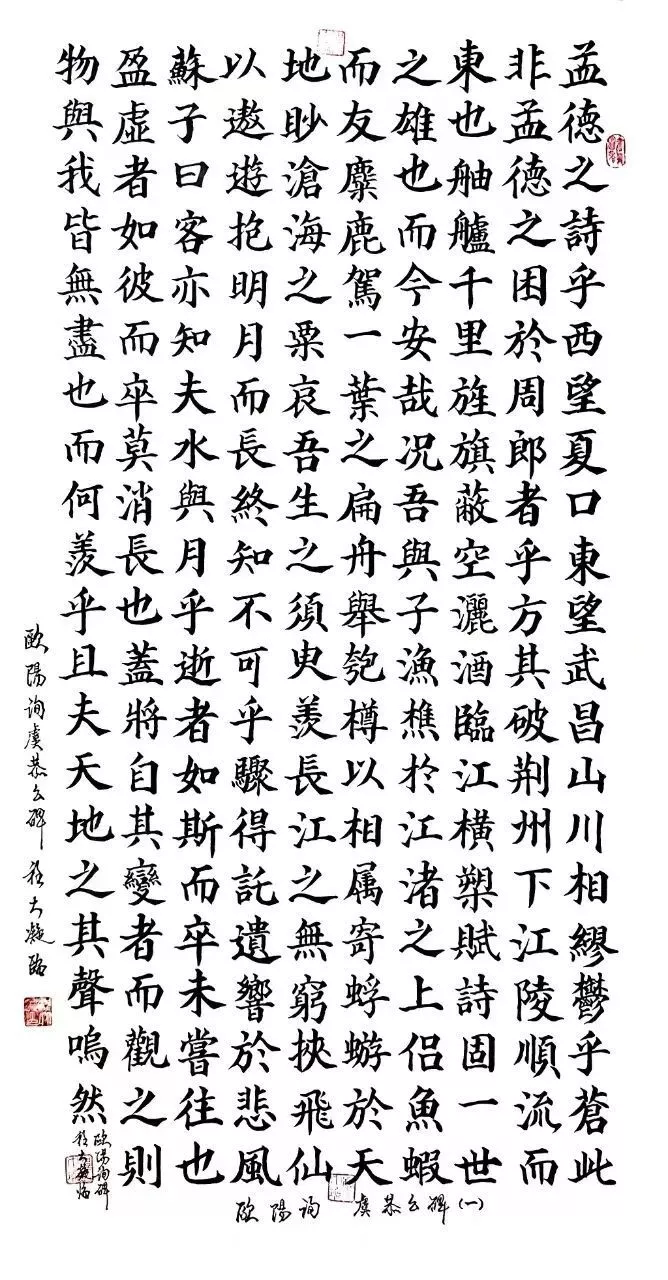 孟德之詩乎西望夏口東望武昌山川相繆鬱乎蒼此
非孟德之困於周郎者乎方其破荆州下江陵順流而
東也舳艫千里旌旗蔽空灑酒臨江橫槊賦詩固一世
之雄也而今安哉况吾與子漁樵於江渚之上侶魚蝦
而友麋鹿駕一葉之扁舟舉匏樽以相属寄蜉蝣於天
地眇滄海之粟哀吾生之須臾羨長江之無窮挾飛仙
以遨遊抱明月而長終知不可乎驟得託遺響於悲風
蘇子曰客亦知夫水與月乎逝者如斯而卒未嘗往也
盈虛者如彼而卒莫消長也蓋將自其變者而觀之則
物與我皆無盡也而何羨乎且夫天地之其聲嗚然
歐陽詢碑
歐陽詢虞恭公碑
歐陽詢 虞恭公碑(一)